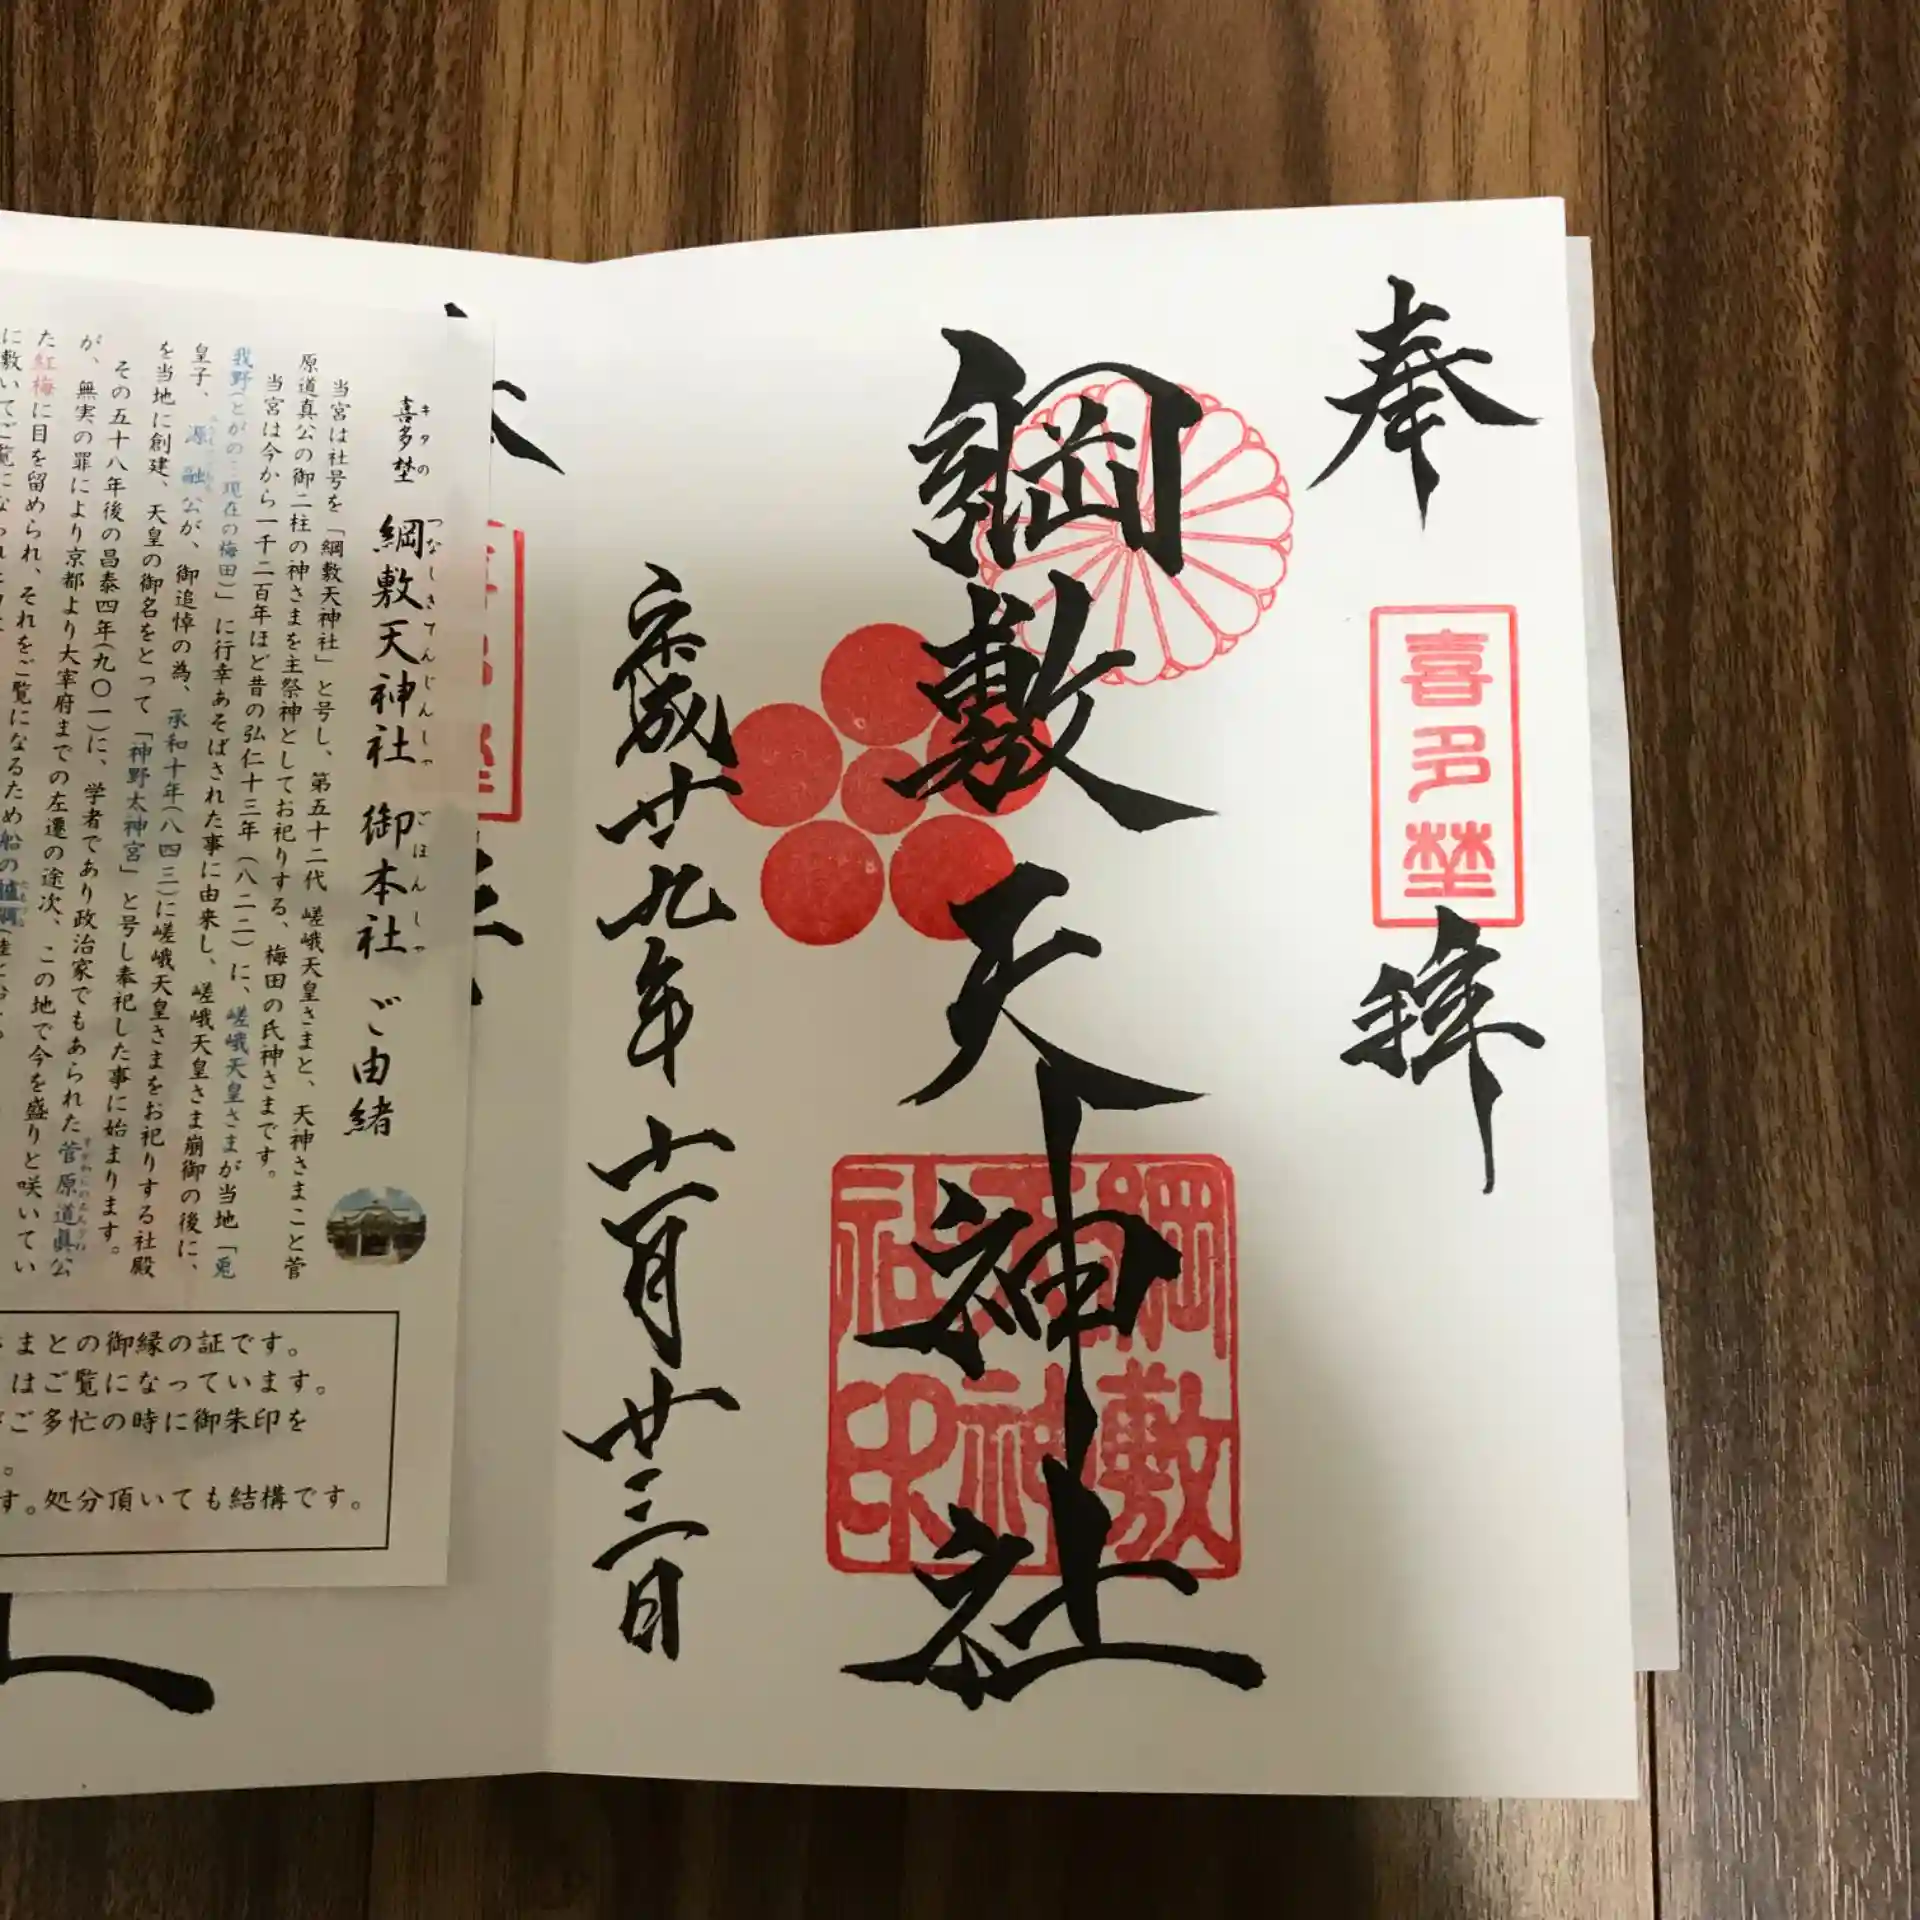 奉拝
喜多埜
綱敷天神社
綱敷天神社印
平成廿九年十一月廿三日
喜多埜 綱敷天神社 御本社 ご由緒
キタの つなしきてんじんしゃ ごほんしゃ
当宮は社号を「綱敷天神社」と号し、第五十二代 嵯峨天皇さまと、天神さまこと菅
原道真公の御二柱の神さまを主祭神としてお祀りする、梅田の氏神さまです。
当宮は今から一千二百年ほど昔の弘仁十三年(八二二)に、嵯峨天皇さまが当地「兎
我野(とがの:現在の梅田)」に行幸あそばされた事に由来し、嵯峨天皇さま崩御の後に、
皇子、源 融公が、御追悼の為、承和十年(八四三)に嵯峨天皇さまをお祀りする社殿
を当地に創建、天皇の御名をとって「神野太神宮」と号し奉祀した事に始まります。
その五十八年後の昌泰四年(九〇一)に、学者であり政治家でもあられた菅原道真公
が、無実の罪により京都より大宰府までの左遷の途次、この地で今を盛りと咲いてい
た紅梅に目を留められ、それをご覧になるため船の艫綱
に敷いてご覧になられ
まとの御縁の証です。
はご覧になっています。
ご多忙の時に御朱印を
。
す。処分頂いても結構です。